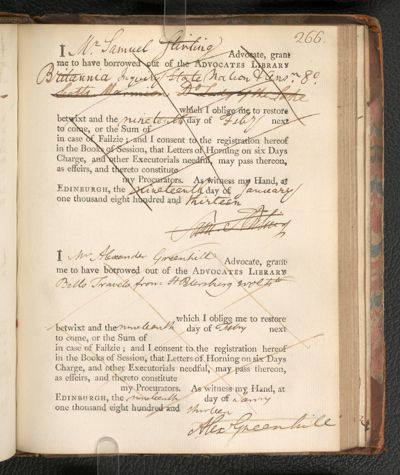 266.
I Mr Samuel Stirling Advocate, grant
me to have borrowed out of the ADVOCATES LIBRARY
Britannia State Nation 8o
Scotts Marmion Do Lady of the Lake
which I oblige me to restore
betwixt and the nineteenth day of Feby next
to come, or the Sum of
in case of Failzie; and I consent to the registration hereof
in the Books of Session, that Letters of Horning on six Days
Charge, and other Executorials needful, may pass thereon,
as effeirs, and thereto constitute
my Procurators. As witness my Hand, at
EDINBURGH, the nineteenth day of January
one thousand eight hundred and thirteen
Samuel Stirling
I Mr Alexander Greenhill Advocate, grant
me to have borrowed out of the ADVOCATES LIBRARY
Bells Travels from St Petersburg
which I oblige me to restore
betwixt and the nineteenth day of Feby next
to come, or the Sum of
in case of Failzie; and I consent to the registration hereof
in the Books of Session, that Letters of Horning on six Days
Charge, and other Executorials needful, may pass thereon,
as effeirs, and thereto constitute
my Procurators. As witness my Hand, at
EDINBURGH, the nineteenth day of
one thousand eight hundred and thirteen
Alex Greenhill